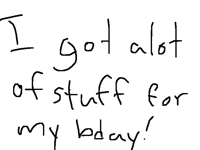 I got alot
of stuff for
my bday!